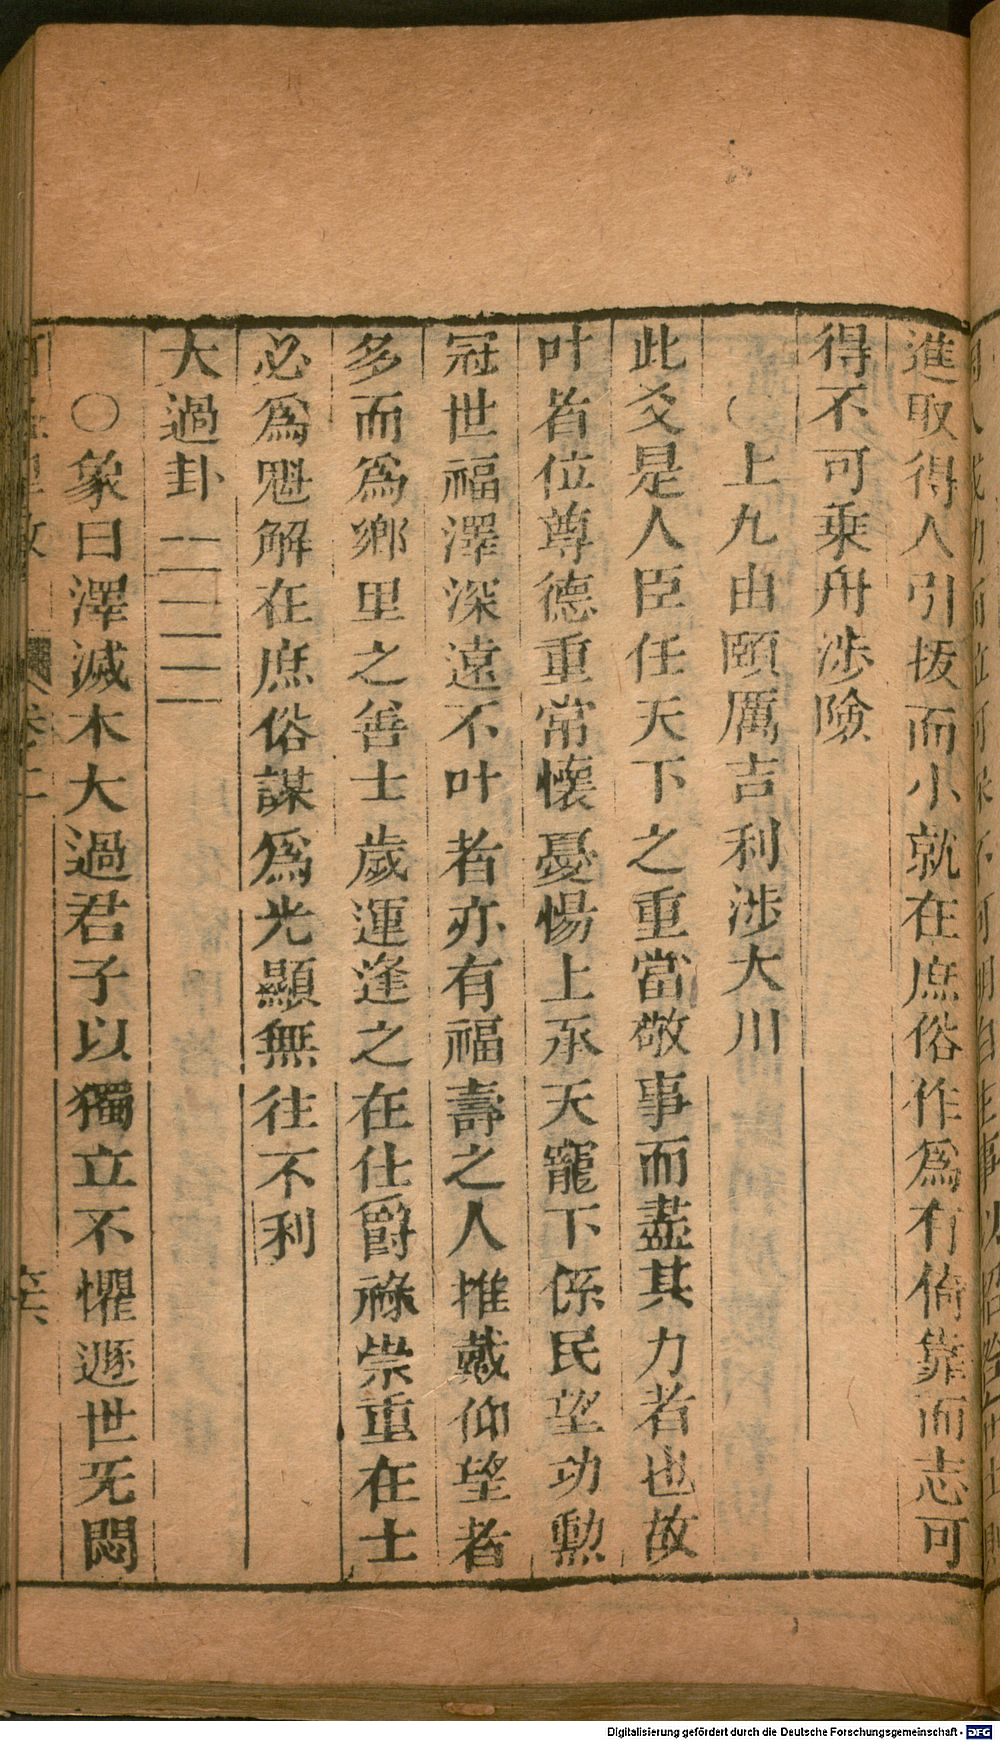 進取得人引拔而小就在庶俗作爲有倚靠而志可
得不可乘舟涉險
○上九由頤厲吉利涉大川
此爻是人臣任天下之重當敬事而盡其力者也故
叶者位尊德重常懷憂惕上承天寵下係民望功勳
冠世福澤深遠不叶者亦有福壽之人推戴仰望者
多而爲鄉里之善士歲運逢之在仕爵祿崇重在士
必爲魁解在庶俗謀爲光顯無往不利
大過卦
○象曰澤滅木大過君子以獨立不懼遯世无悶
Digitalisierung gefördert durch die Deutsche Forschungsgemeinschaft - DFG